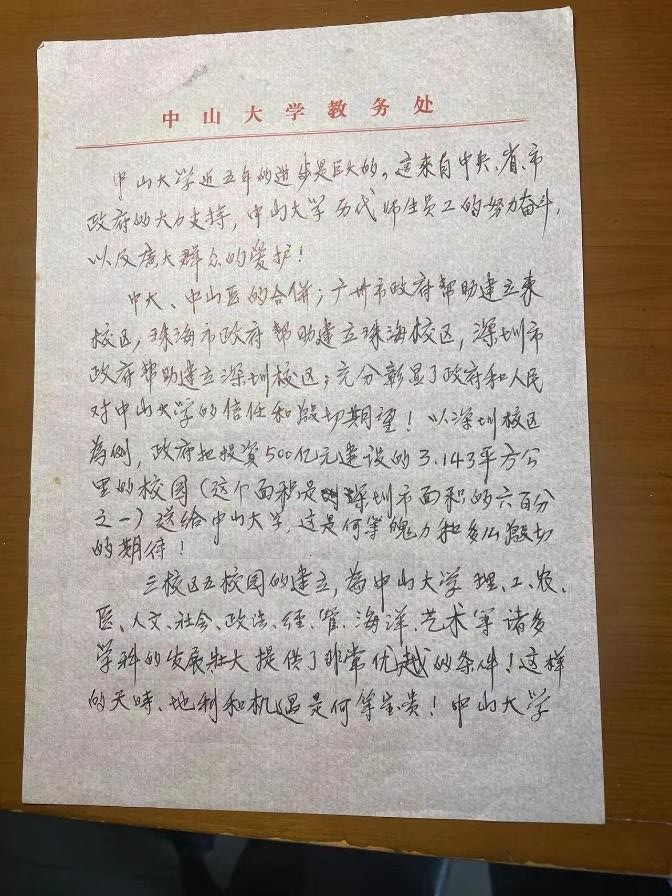 中山大学教务处
中山大学近五年的进步是巨大的。这来自中央、省、市
政府的大力支持，中山大学历代师生员工的努力奋斗，
以及广大群众的爱护！
中大、中山医的合併；广州市政府帮助建立东
校区，珠海市政府帮助建立珠海校区，深圳市
政府帮助建立深圳校区；充分彰显了政府和人民
对中山大学的信任和殷切期望！以深圳校区
为例，政府把投资500亿元建设的3.143平方公
里的校园（这个面积是深圳市面积的六百分
之一）送给中山大学，这是何等魄力和多么殷切
的期待！
三校区五校园的建立，为中山大学理、工、农、
医、人文、社会、政法、经、管、海洋、艺术等诸多
学科的发展壮大提供了非常优越的条件！这样
的天时、地利和机遇是何等宝贵！中山大学